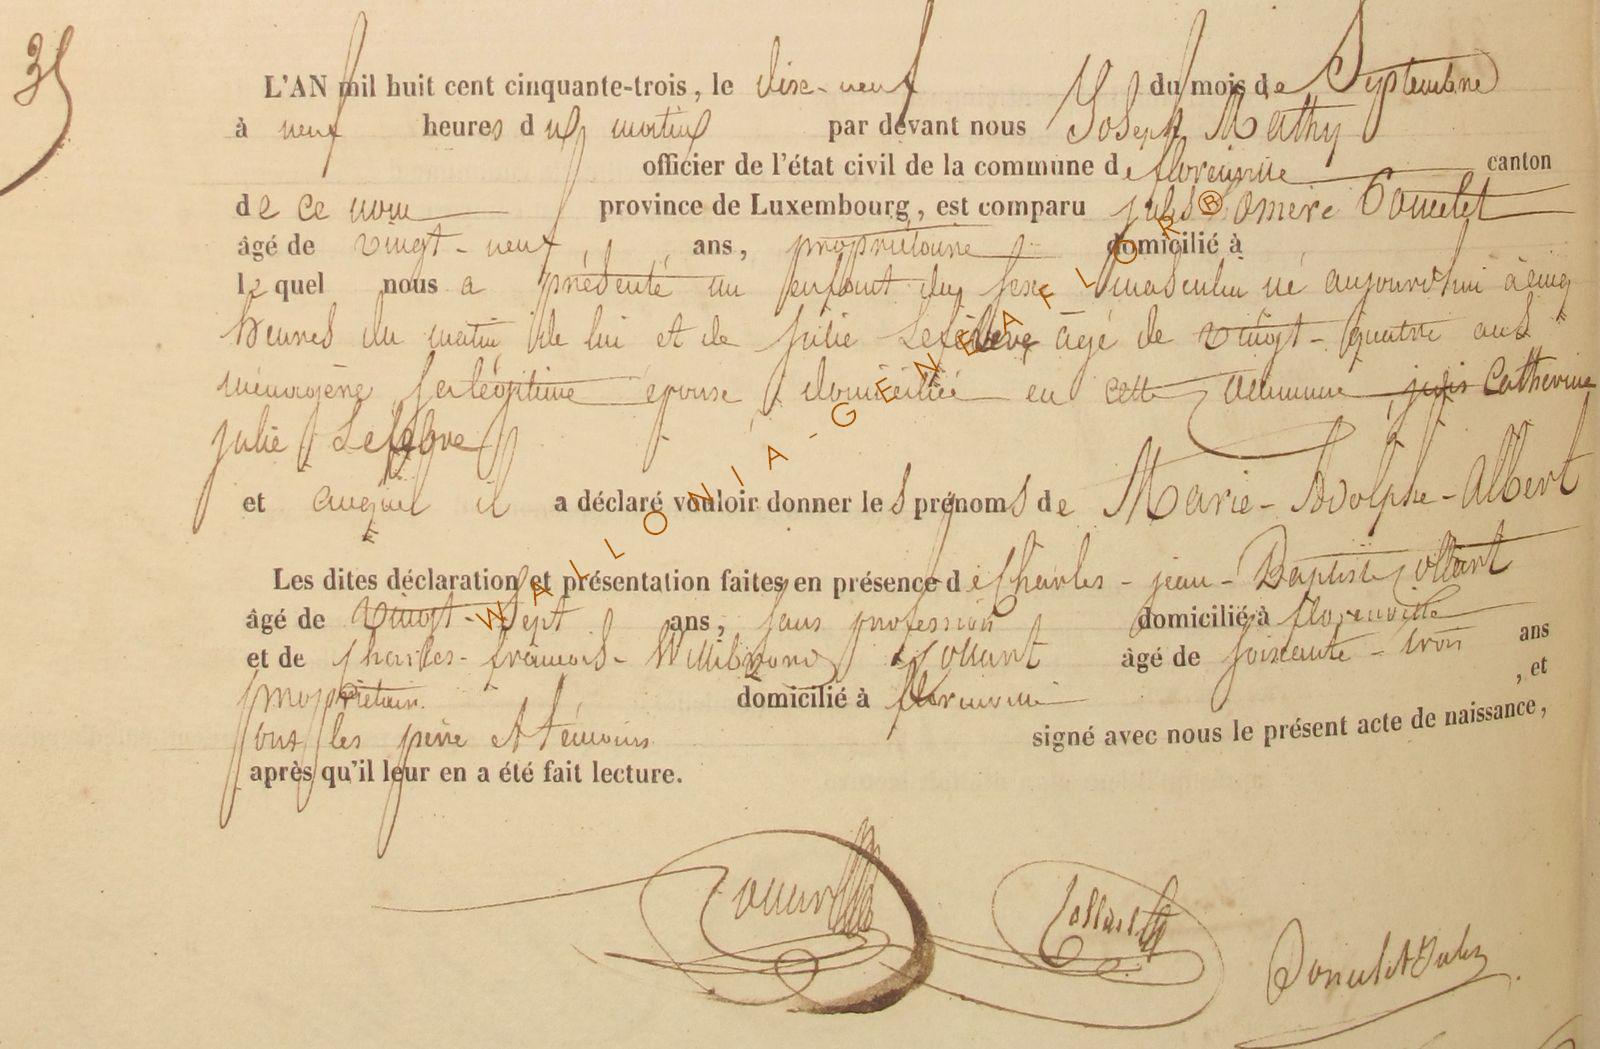 35
L'AN mil huit cent cinquante-trois, le dix-neuf du mois de Septembre
à neuf heures du matin par devant nous Joseph Mathy
officier de l'état civil de la commune de florenville canton
de ce nom province de Luxembourg, est comparu jules omère
âgé de vingt-neuf ans, propriétaire domicilié à
lequel nous a présenté un enfant du sexe masculin né aujourd'hui à cinq
heures du matin de lui et de julie Lefebvre âgé de vingt-quatre ans
ménagère sa légitime épouse domiciliée en cette commune Catherine
julie Lefebvre
et auquel il a déclaré vouloir donner les prénoms de Marie-Adolphe-Albert
Les dites déclaration et présentation faites en présence de Charles-jean-Baptiste Collart
âgé de vingt-sept ans, sans profession domicilié à florenville
et de charles-françois-Willibrord Collart âgé de soixante-trois ans
propriétaire domicilié à florenville , et
ont les père et témoins signé avec nous le présent acte de naissance,
après qu'il leur en a été fait lecture.
Collart
WALLONIA-GENEAFLOR®